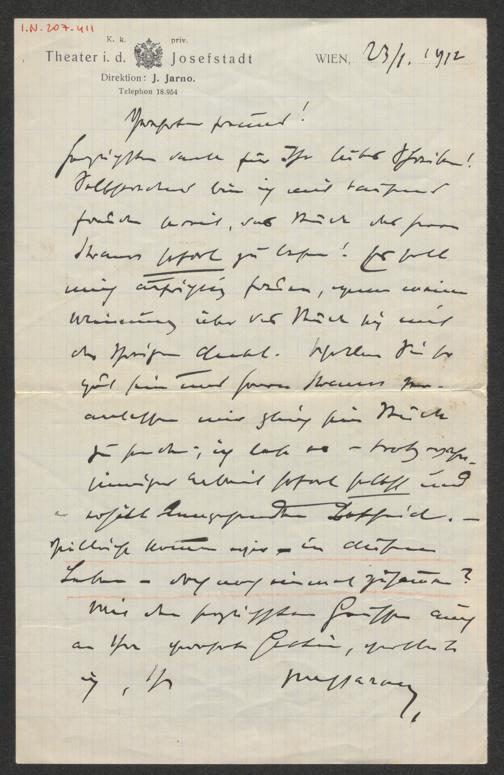 I.N. 207.411
K. k. priv.
Theater i. d. Josefstadt
Direktion: J. Jarno.
Telephon 18.954
WIEN, 23/1. 1912
Verehrter Freund!
Herzlichsten Dank für Ihr liebes Schreiben!
Selbstredend bin ich mit tausend
Freuden bereit, das Stück des Herrn
Strauss sofort zu lesen! Es soll
mich aufrichtig freuen, wenn meine
Meinung über das Stück sich mit
der Ihrigen deckt. Wollen Sie so
gut sein und Herrn Strauss ver-
anlassen mir gleich sein Stück
zu senden, ich lese es – trotz
Arbeit sofort selbst und
Bescheid. –
Vielleicht kommen wir – in diesem
Leben – doch noch einmal zusammen?
Mit den herzlichsten Grüssen auch
an Ihre verehrte Gattin,
ich, Ihr
Jarno